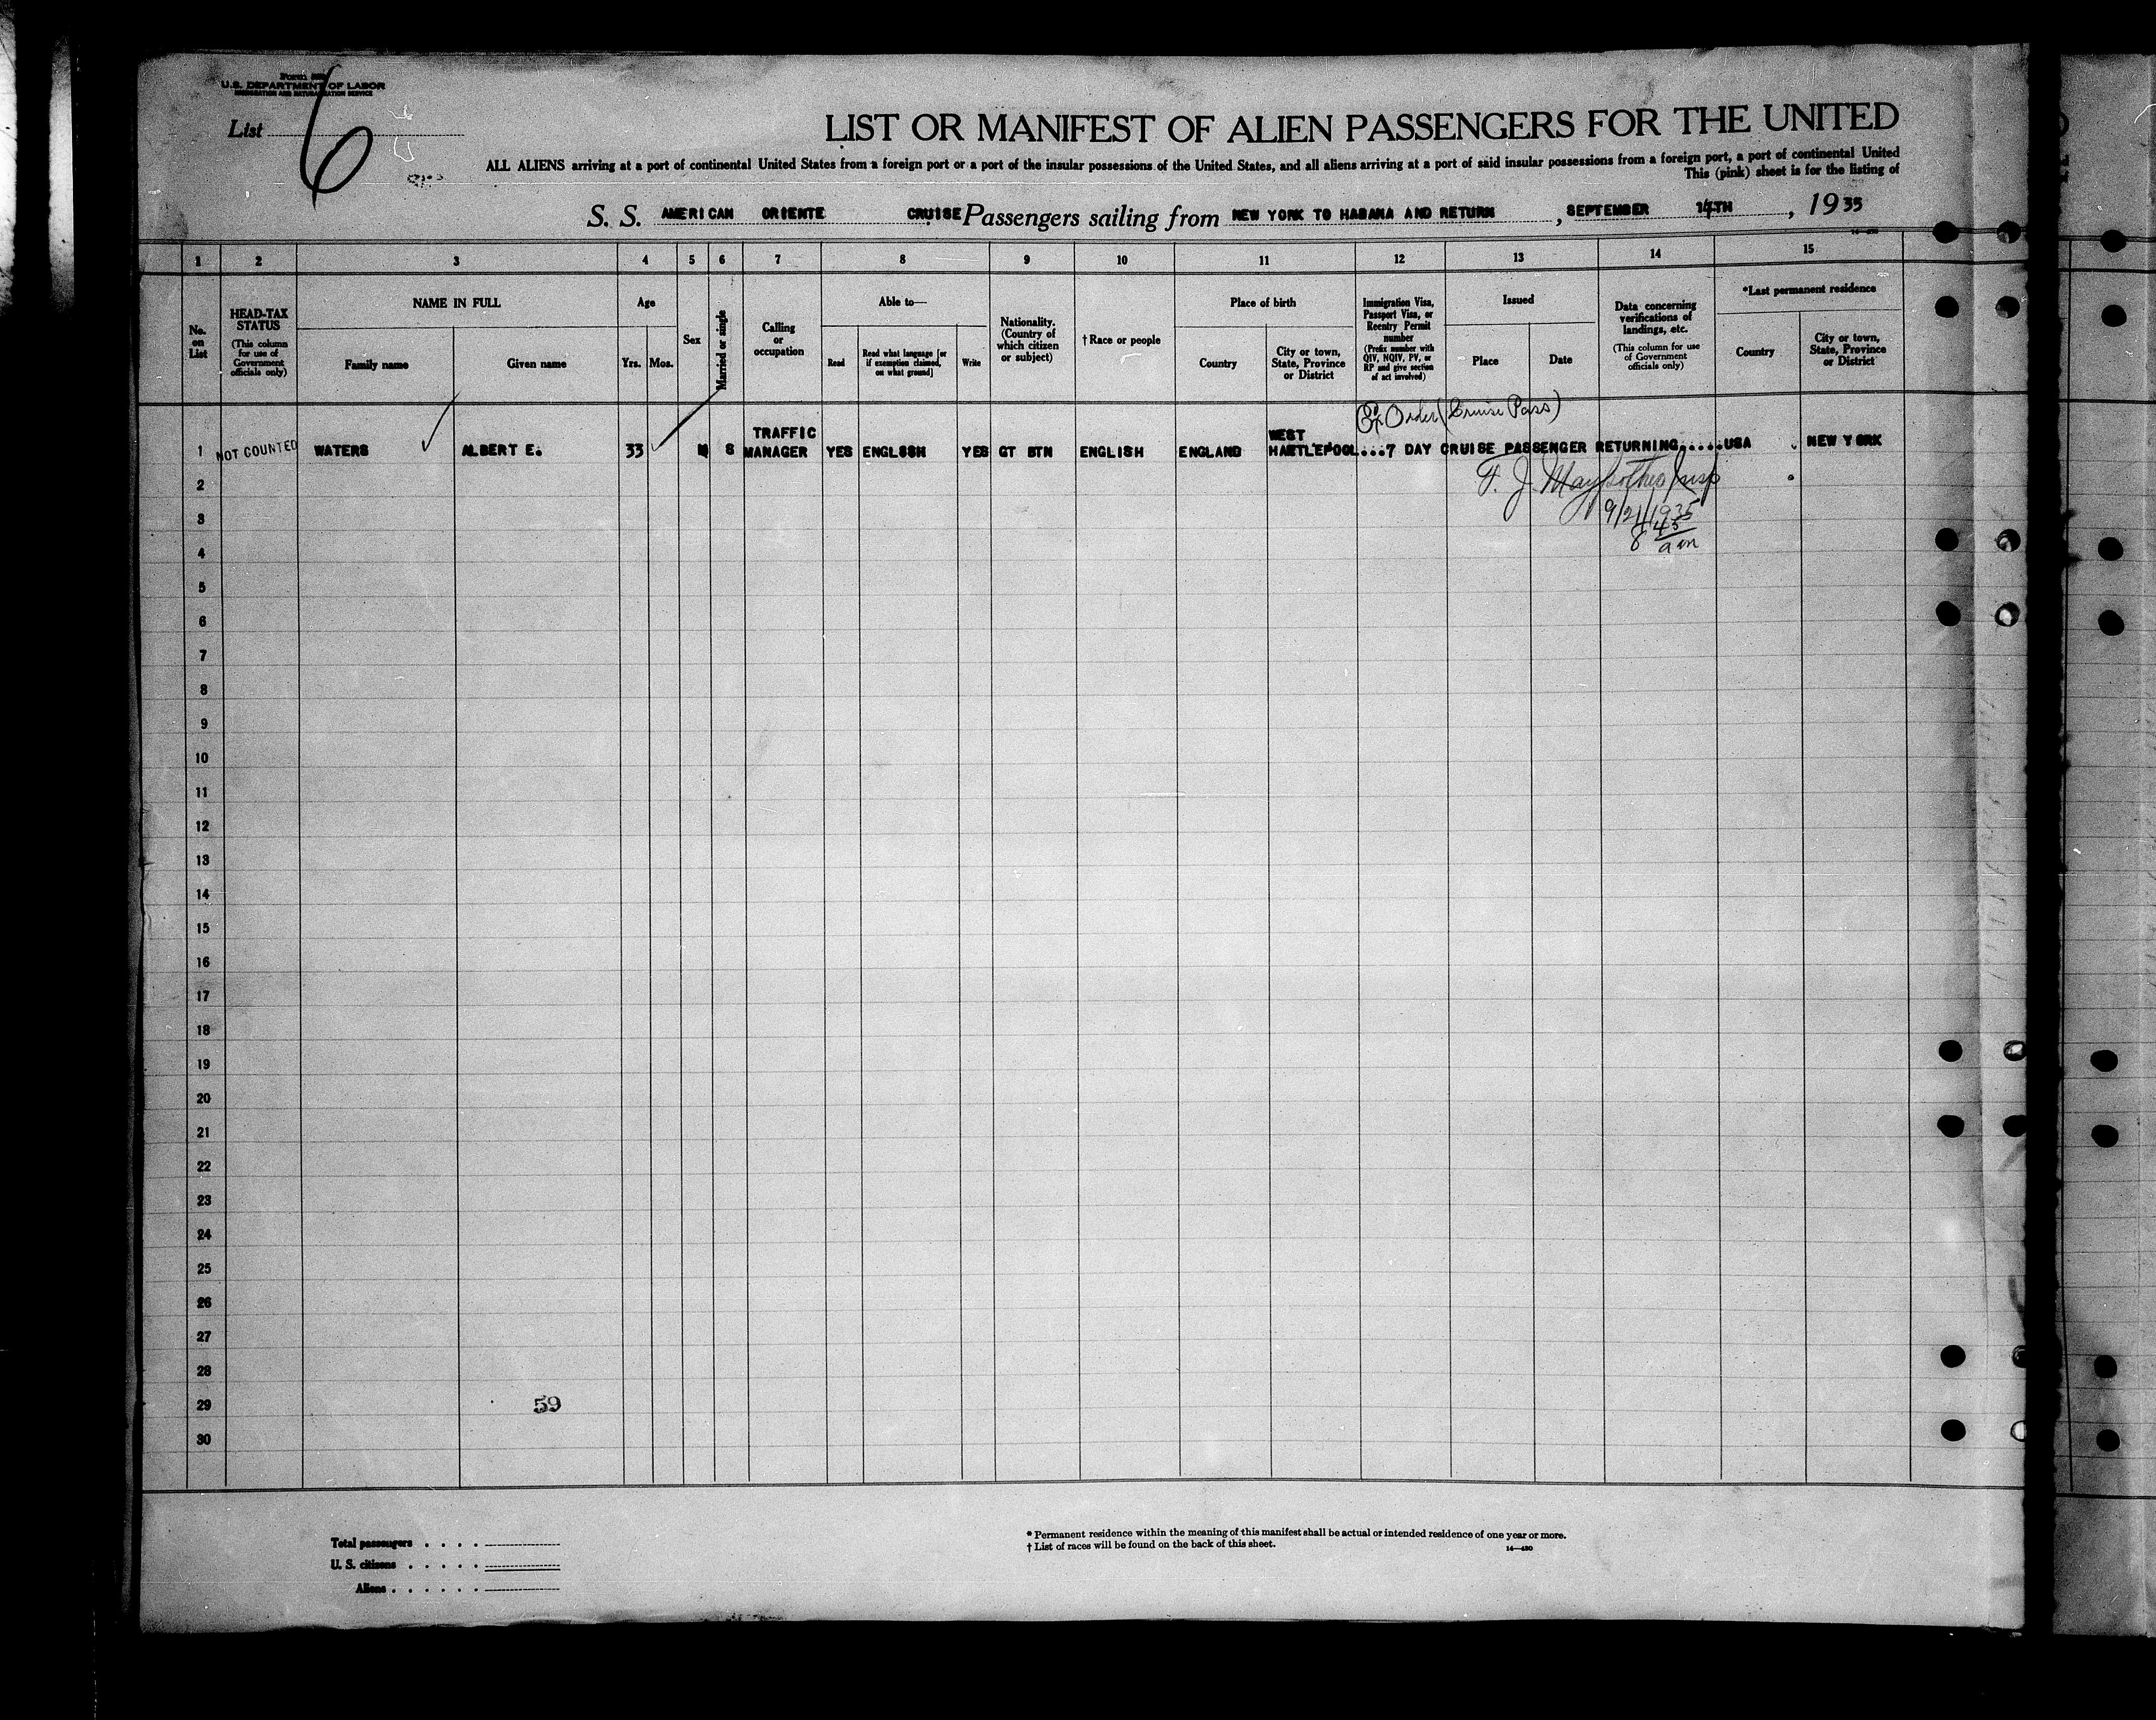 U.S. DEPARTMENT OF LABOR
IMMIGRATION AND NATURALIZATION SERVICE
List 6
LIST OR MANIFEST OF ALIEN PASSENGERS FOR THE UNITED
ALL ALIENS arriving at a port of continental United States from a foreign port or a port of the insular possessions of the United States, and all aliens arriving at a port of said insular possessions from a foreign port, a port of continental United
This (pink) sheet is for the listing of
S. S. AMERICAN ORIENTE CRUISE Passengers sailing from NEW YORK TO HABANA AND RETURN, SEPTEMBER 14TH, 1935
1 2 3 4 5 6 7 8 9 10 11 12 13 14 15
No. on List
HEAD-TAX STATUS (This column for use of Government officials only)
NAME IN FULL
Family name
Given name
Age
Yrs. Mos.
Sex
Married or single
Calling or occupation
Able to—
Read
Read what language [or if exemption claimed, on what ground]
Write
Nationality. (Country of which citizen or subject)
†Race or people
Place of birth
Country
City or town, State, Province or District
Immigration Visa, Passport Visa, or Reentry Permit number (Prefix number with QIV, NQIV, PV, or RP and give section of act involved)
Issued
Place
Date
Data concerning verifications of landings, etc. (This column for use of Government officials only)
*Last permanent residence
Country
City or town, State, Province or District
Ex Order (Cruise Pass)
1 NOT COUNTED WATERS ALBERT E. 33 M S TRAFFIC MANAGER YES ENGLSSH YES GT BTN ENGLISH ENGLAND WEST HARTLEPOOL...7 DAY CRUISE PASSENGER RETURNING.....USA NEW YORK
2 F. J. Insp
3 9/21/1935
4 8 45 am
5
6
7
8
9
10
11
12
13
14
15
16
17
18
19
20
21
22
23
24
25
26
27
28
29 59
30
Total passengers . . . .
U. S. citizens . . . . .
Aliens . . . . . .
* Permanent residence within the meaning of this manifest shall be actual or intended residence of one year or more.
† List of races will be found on the back of this sheet.
14—430